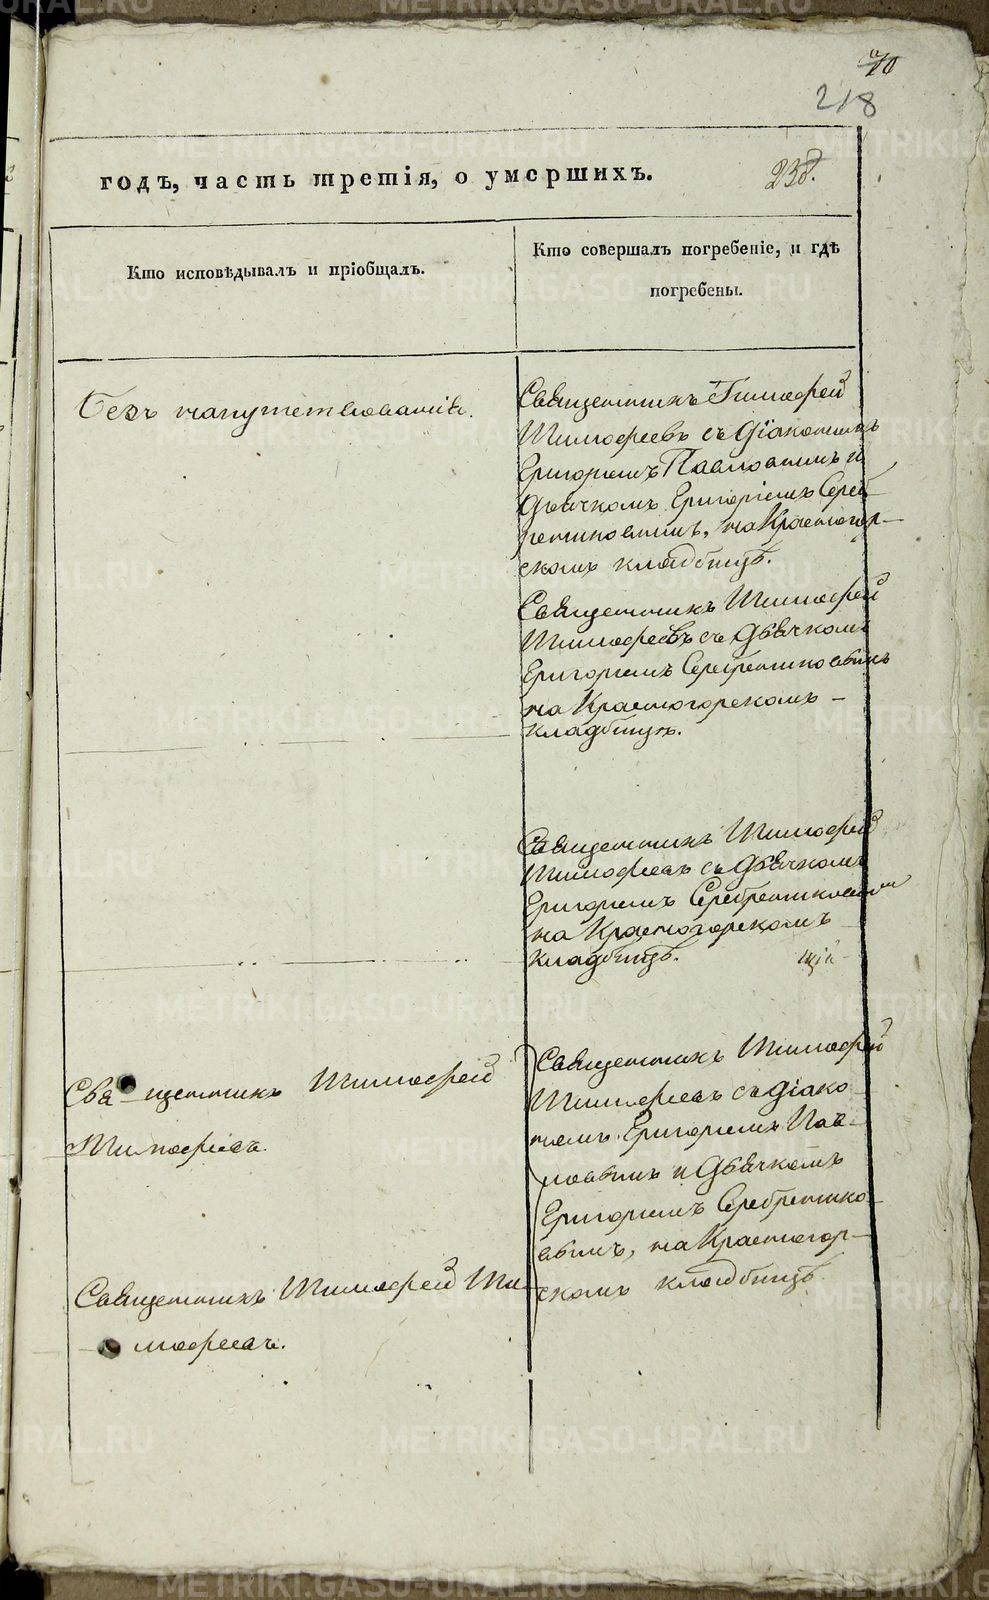 218
годъ, часть третія, о умершихъ.
238.
Кто исповѣдывалъ и пріобщалъ.
Кто совершалъ погребеніе, и гдѣ
погребены.
Безъ напутствованія.
Священникъ Тимофей
Тимофеевъ съ діакономъ
Григоріемъ Павловымъ и
дьячкомъ Григоріемъ Сереб-
рениковымъ, на Красногор-
скомъ кладбищѣ.
Священникъ Тимофей
Тимофеевъ съ дьячкомъ
Григоріемъ Серебрениковымъ
на Красногорскомъ –
кладбищѣ.
Священникъ Тимофей
Тимофеевъ съ дьячкомъ
Григоріемъ Серебрениковым
на Красногорскомъ
кладбищѣ.
щій
Священникъ Тимофей
Тимофеевъ.
Священникъ Тимофей Ти-
мофеевъ.
Священникъ Тимофей
Тимофеевъ съ діако-
номъ Григоріемъ Пав-
ловымъ и дьячкомъ
Григоріемъ Серебренико-
вымъ, на Красногор-
скомъ кладбищѣ
METRIKI.GASO-URAL.RU